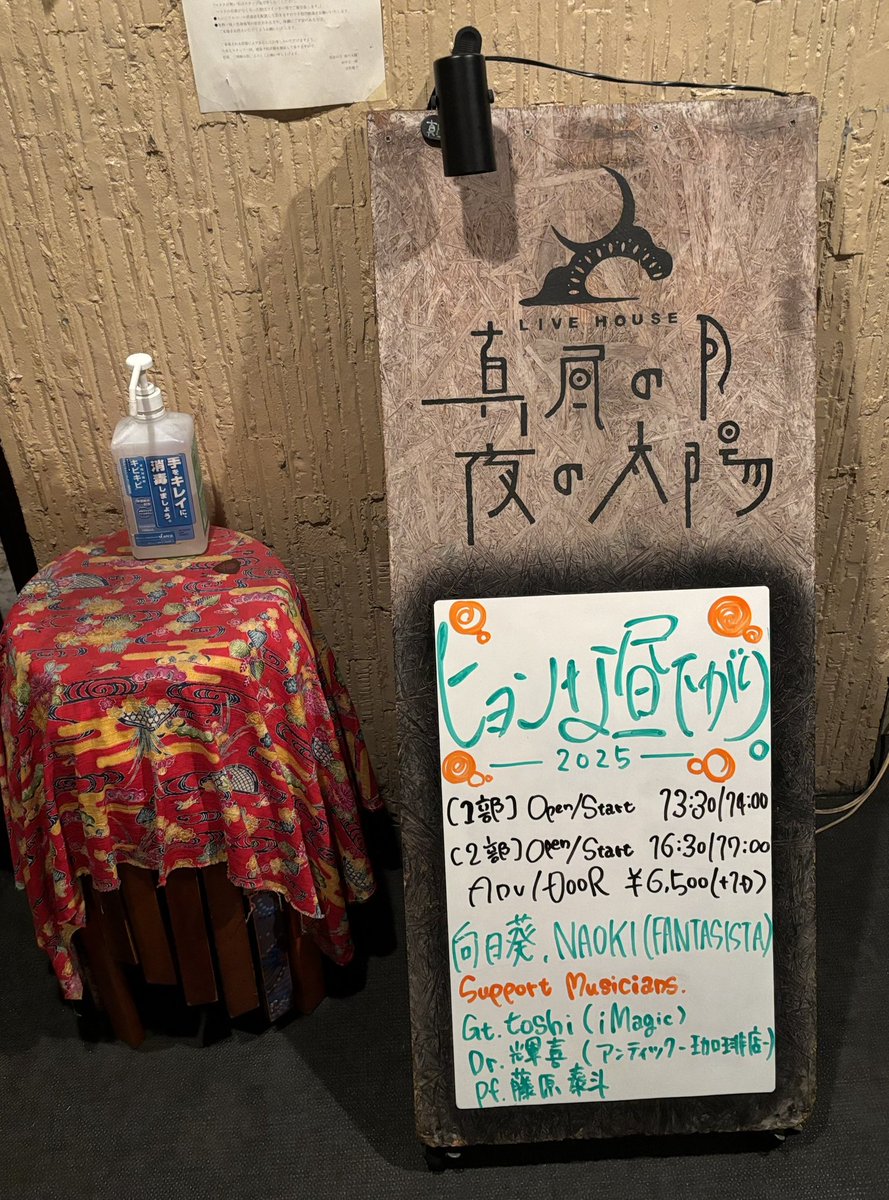 LIVE HOUSE
真昼の月
夜の太陽
手をキレイに、
消毒しましょう。
キビキビ
ヒョンな昼下がり
2025
[1部] Open/Start 13:30/14:00
[2部] Open/Start 16:30/17:00
Adv/DooR ¥6,500(+1D)
向日葵、NAOKI(FANTASISTA)
Support Musicians.
Gt. toshi (iMagic)
Dr. 輝喜 (アンティック-珈琲店-)
Pf. 藤原泰斗